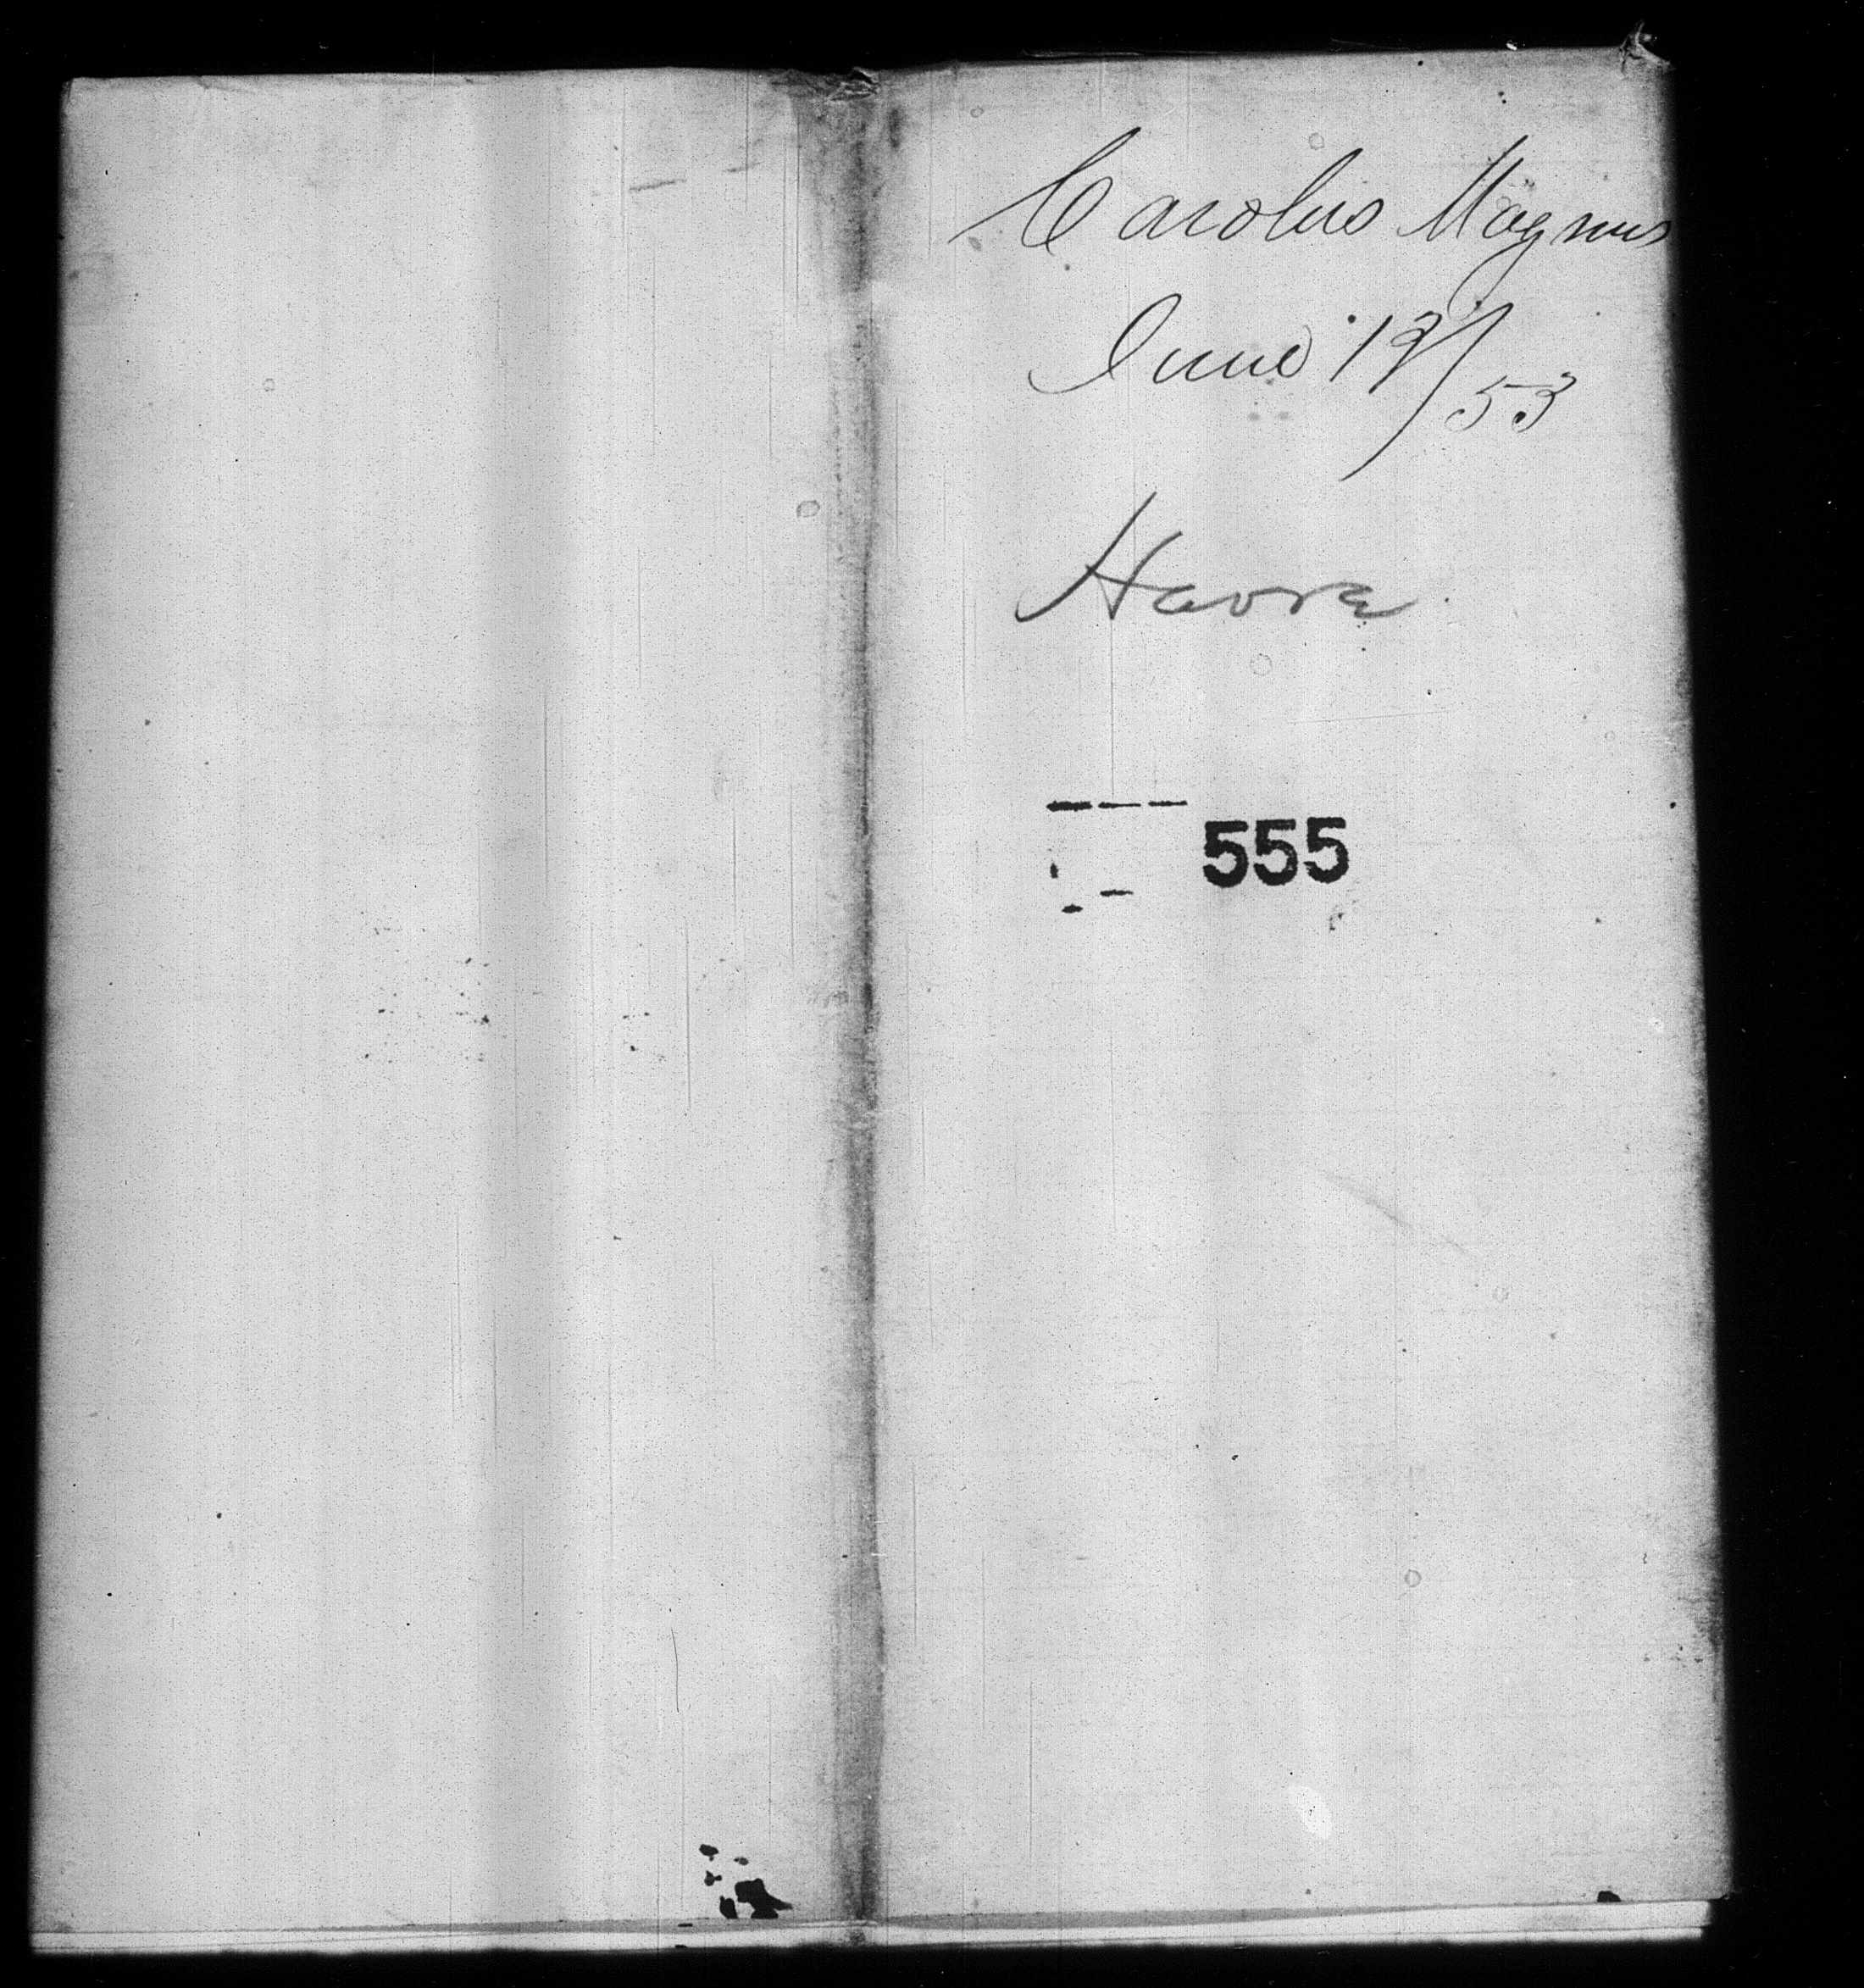 Carolus Magnus
June 13/53
Havre
555